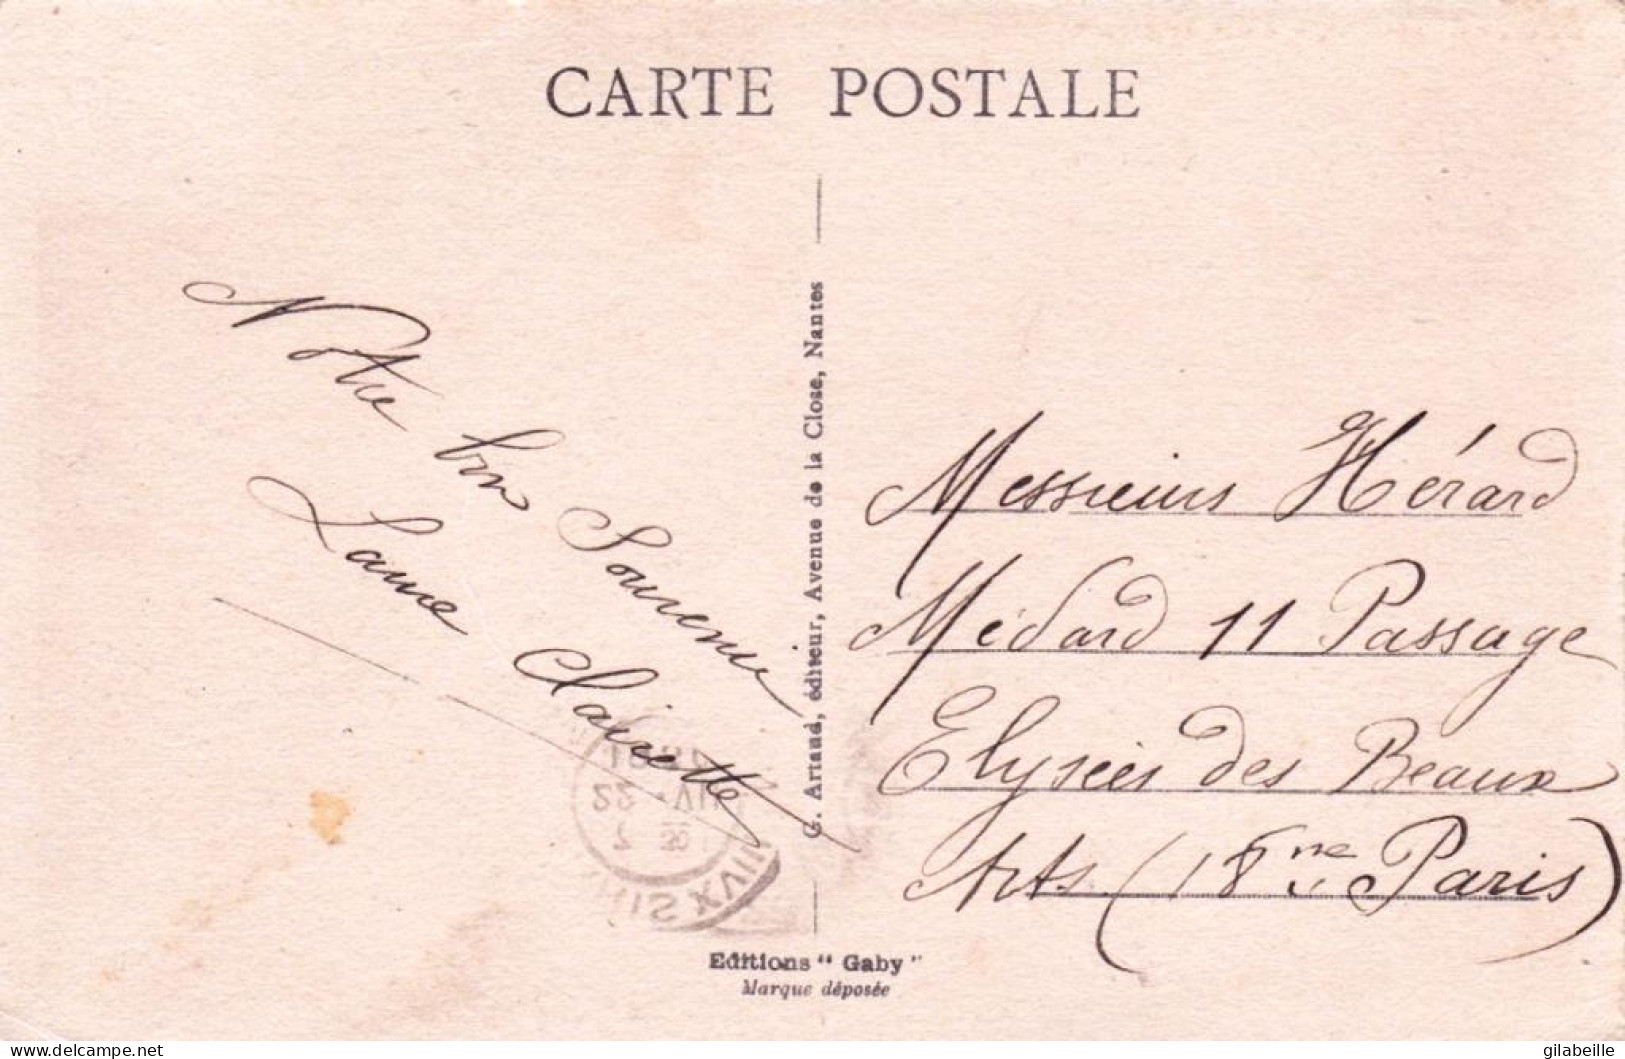 CARTE POSTALE
Notre bon Souvenir
Laure Clairette
G. Artaud, éditeur, Avenue de la Close, Nantes
Messieurs Hérard
Médard 11 Passage
Elysées des Beaux
Arts (18me Paris)
22 VII
26
Editions " Gaby "
Marque déposée
www.delcampe.net
gilabeille